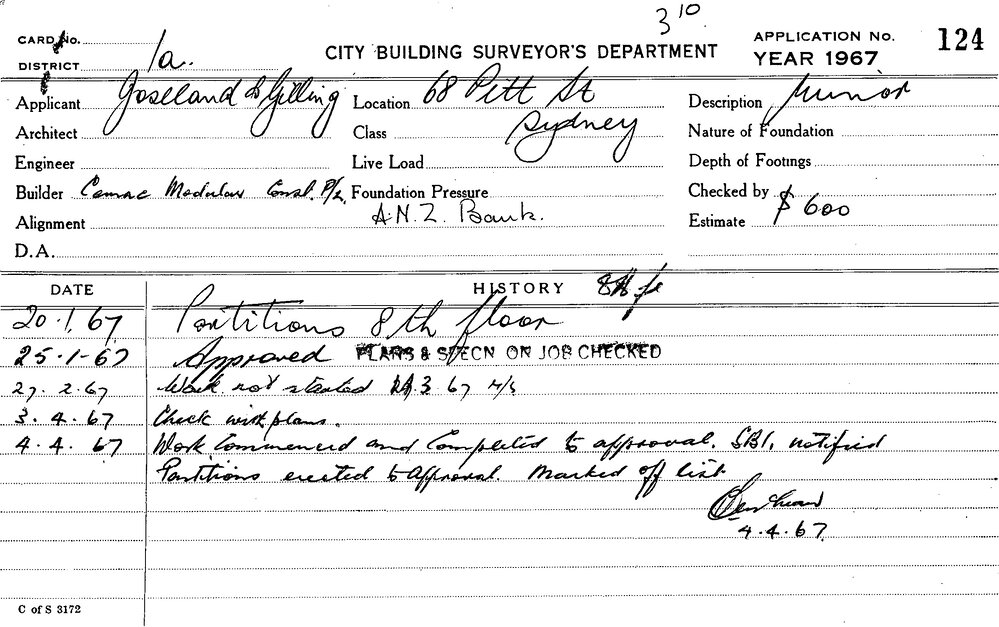 3 10
CARD No.
CITY BUILDING SURVEYOR'S DEPARTMENT
APPLICATION No. 124
DISTRICT 1a.
YEAR 1967
Applicant Joseland & Gilling Location 68 Pitt St Description Minor
Architect Class Sydney Nature of Foundation
Engineer Live Load Depth of Footings
Builder Camac Modular Const. P/L. Foundation Pressure Checked by
Alignment A.N.Z. Bank. Estimate $ 600
D.A.
DATE HISTORY 8th fl
20.1.67 Partitions 8th floor
25.1.67 Approved PLANS & SPECN ON JOB CHECKED
27.2.67 Work not started 3 67
3.4.67 Check with plans.
4.4.67 Work Commenced and Completed to approval. SBI, notified
Partitions erected to Approval. Marked off list
4.4.67
C of S 3172